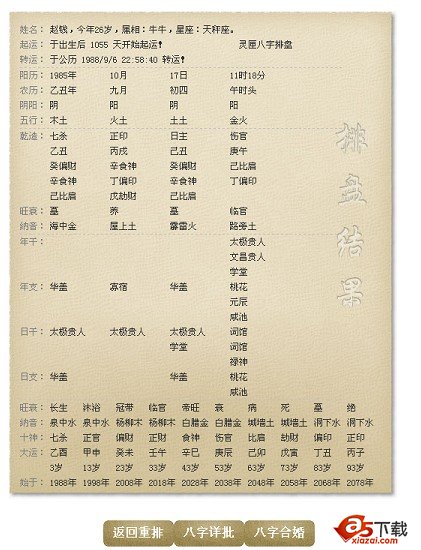 姓名： 赵钱，今年26岁，属相：牛牛，星座：天秤座。
起运： 于出生后 1055 天开始起运！ 灵匣八字排盘
转运： 于公历 1988/9/6 22:58:40 转运！
阳历： 1985年 10月 17日 11时18分
农历： 乙丑年 九月 初四 午时头
阴阳： 阴 阳 阴 阳
五行： 木土 火土 土土 金火
乾造： 七杀 正印 日主 伤官
乙丑 丙戌 己丑 庚午
癸偏财 辛食神 癸偏财 己比肩
辛食神 丁偏印 辛食神 丁偏印
己比肩 戊劫财 己比肩
旺衰： 墓 养 墓 临官
纳音： 海中金 屋上土 霹雷火 路旁土
年干： 太极贵人
文昌贵人
学堂
年支： 华盖 寡宿 华盖 桃花
元辰
咸池
日干： 太极贵人 太极贵人 太极贵人 词馆
学堂 词馆
禄神
日支： 华盖 华盖 桃花
咸池
旺衰： 长生 沐浴 冠带 临官 帝旺 衰 病 死 墓 绝
纳音： 泉中水 泉中水 杨柳木 杨柳木 白腊金 白腊金 城墙土 城墙土 涧下水 涧下水
十神： 七杀 正官 偏财 正财 食神 伤官 比肩 劫财 偏印 正印
大运： 乙酉 甲申 癸未 壬午 辛巳 庚辰 己卯 戊寅 丁丑 丙子
3岁 13岁 23岁 33岁 43岁 53岁 63岁 73岁 83岁 93岁
始于： 1988年 1998年 2008年 2018年 2028年 2038年 2048年 2058年 2068年 2078年
排盘结果
返回重排 八字详批 八字合婚
a5下载
xiazai.com